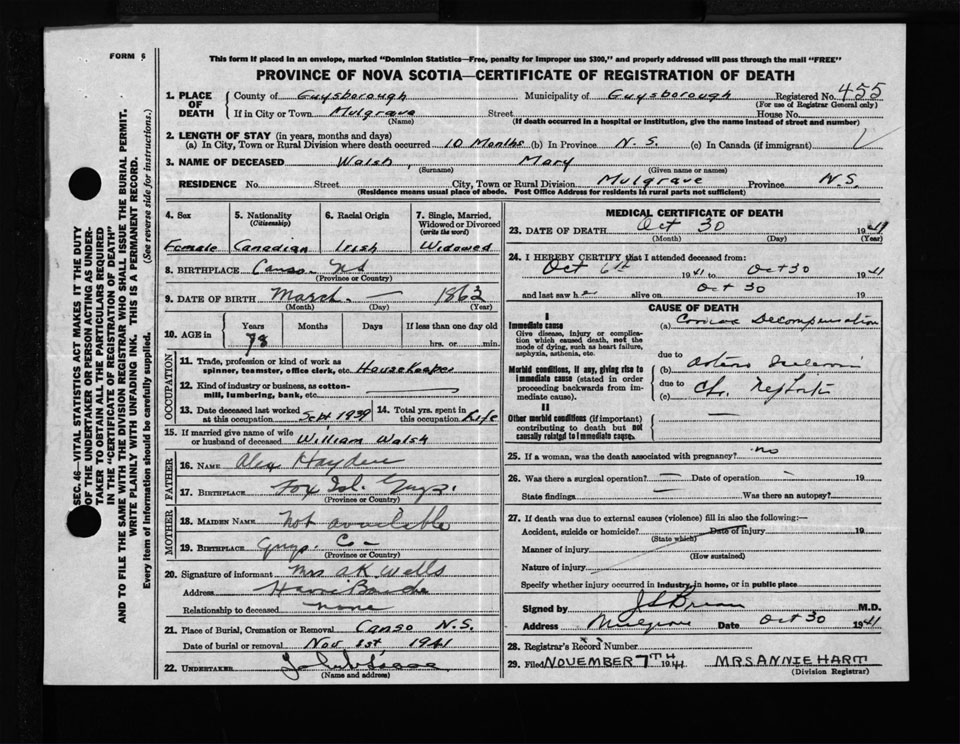 FORM 6
This form if placed in an envelope, marked "Dominion Statistics—Free, penalty for improper use $300," and properly addressed will pass through the mail "FREE"
PROVINCE OF NOVA SCOTIA—CERTIFICATE OF REGISTRATION OF DEATH
1. PLACE OF DEATH County of Guysborough Municipality of Guysborough Registered No. 455
(For use of Registrar General only)
If in City or Town Mulgrave Street House No.
(Name) (If death occurred in a hospital or institution, give the name instead of street and number)
2. LENGTH OF STAY (in years, months and days)
(a) In City, Town or Rural Division where death occurred 10 Months (b) In Province N.S. (c) In Canada (if immigrant)
3. NAME OF DECEASED Walsh, Mary
(Surname) (Given name or names)
RESIDENCE No. Street City, Town or Rural Division Mulgrave Province N.S.
(Residence means usual place of abode. Post Office Address for residents in rural parts not sufficient)
4. Sex Female
5. Nationality (Citizenship) Canadian
6. Racial Origin Irish
7. Single, Married, Widowed or Divorced (write the word) Widowed
8. BIRTHPLACE Canso NS
(Province or Country)
9. DATE OF BIRTH March — 1863
(Month) (Day) (Year)
10. AGE in Years Months Days If less than one day old
78 hrs. or min.
OCCUPATION
11. Trade, profession or kind of work as spinner, teamster, office clerk, etc. Housekeeper
12. Kind of industry or business, as cotton-mill, lumbering, bank, etc.
13. Date deceased last worked at this occupation Sept 1939
14. Total yrs. spent in this occupation Life
15. If married give name of wife or husband of deceased William Walsh
FATHER
16. NAME Alex Hayden
17. BIRTHPLACE Fox Isl. Guys.
(Province or Country)
MOTHER
18. MAIDEN NAME Not available
19. BIRTHPLACE Guys. Co—
(Province or Country)
20. Signature of informant Mrs A K Wells
Address
Relationship to deceased none
21. Place of Burial, Cremation or Removal Canso N.S.
Date of burial or removal Nov 1st 1941
22. UNDERTAKER
(Name and address)
MEDICAL CERTIFICATE OF DEATH
23. DATE OF DEATH Oct 30 1941
(Month) (Day) (Year)
24. I HEREBY CERTIFY that I attended deceased from:
Oct 6th 1941 to Oct 30 1941
and last saw h alive on Oct 30 19
CAUSE OF DEATH
I
Immediate cause (a) Decompensation
Give disease, injury or complication which caused death, not the mode of dying, such as heart failure, asphyxia, asthenia, etc.
due to
Morbid conditions, if any, giving rise to immediate cause (stated in order proceeding backwards from immediate cause). (b)
due to
(c) Ch.
II
Other morbid conditions (if important) contributing to death but not causally related to immediate cause.
25. If a woman, was the death associated with pregnancy? no
26. Was there a surgical operation? — Date of operation — 19
State findings — Was there an autopsy?
27. If death was due to external causes (violence) fill in also the following:—
Accident, suicide or homicide? Date of injury 19
(State which)
Manner of injury
(How sustained)
Nature of injury
Specify whether injury occurred in industry, in home, or in public place
Signed by M.D.
Address Mulgrave Date Oct 30 1941
28. Registrar's Record Number
29. Filed NOVEMBER 7TH 1941 MRS ANNIE HART
(Division Registrar)
SEC. 46—VITAL STATISTICS ACT MAKES IT THE DUTY
OF THE UNDERTAKER OR PERSON ACTING AS UNDER-
TAKER TO OBTAIN ALL THE PARTICULARS REQUIRED
IN THE "CERTIFICATE OF REGISTRATION OF DEATH"
AND TO FILE THE SAME WITH THE DIVISION REGISTRAR WHO SHALL ISSUE THE BURIAL PERMIT.
WRITE PLAINLY WITH UNFADING INK. THIS IS A PERMANENT RECORD.
Every item of information should be carefully supplied. (See reverse side for instructions.)